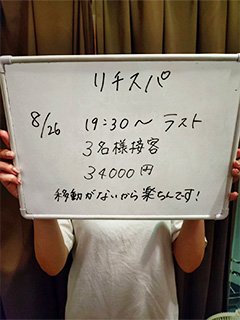 リチスパ
8/26 19:30～ラスト
3名様接客
34000円
移動がないから楽ちんです!